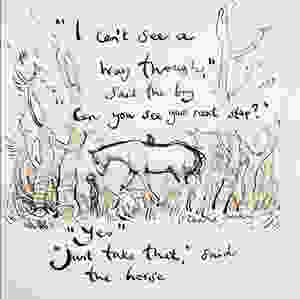 "I can't see a
way through,"
said the boy
"Can you see your next step?"
"Yes"
"Just take that," said
the horse